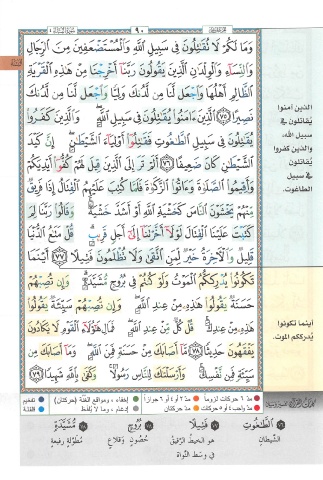 ٩٠
وَمَا لَكُمْ لَا تُقَٰتِلُونَ فِى سَبِيلِ ٱللَّهِ وَٱلْمُسْتَضْعَفِينَ مِنَ ٱلرِّجَالِ
وَٱلنِّسَآءِ وَٱلْوِلْدَٰنِ ٱلَّذِينَ يَقُولُونَ رَبَّنَآ أَخْرِجْنَا مِنْ هَٰذِهِ ٱلْقَرْيَةِ
ٱلظَّالِمِ أَهْلُهَا وَٱجْعَل لَّنَا مِن لَّدُنكَ وَلِيًّا وَٱجْعَل لَّنَا مِن لَّدُنكَ
نَصِيرًا ٧٥ ٱلَّذِينَ ءَامَنُوا۟ يُقَٰتِلُونَ فِى سَبِيلِ ٱللَّهِ وَٱلَّذِينَ كَفَرُوا۟
يُقَٰتِلُونَ فِى سَبِيلِ ٱلطَّٰغُوتِ فَقَٰتِلُوٓا۟ أَوْلِيَآءَ ٱلشَّيْطَٰنِ إِنَّ كَيْدَ
ٱلشَّيْطَٰنِ كَانَ ضَعِيفًا ٧٦ أَلَمْ تَرَ إِلَى ٱلَّذِينَ قِيلَ لَهُمْ كُفُّوٓا۟ أَيْدِيَكُمْ
وَأَقِيمُوا۟ ٱلصَّلَوٰةَ وَءَاتُوا۟ ٱلزَّكَوٰةَ فَلَمَّا كُتِبَ عَلَيْهِمُ ٱلْقِتَالُ إِذَا فَرِيقٌ
مِّنْهُمْ يَخْشَوْنَ ٱلنَّاسَ كَخَشْيَةِ ٱللَّهِ أَوْ أَشَدَّ خَشْيَةً وَقَالُوا۟ رَبَّنَا لِمَ
كَتَبْتَ عَلَيْنَا ٱلْقِتَالَ لَوْلَآ أَخَّرْتَنَآ إِلَىٰٓ أَجَلٍ قَرِيبٍ قُلْ مَتَٰعُ ٱلدُّنْيَا
قَلِيلٌ وَٱلْءَاخِرَةُ خَيْرٌ لِّمَنِ ٱتَّقَىٰ وَلَا تُظْلَمُونَ فَتِيلًا ٧٧ أَيْنَمَا
تَكُونُوا۟ يُدْرِككُّمُ ٱلْمَوْتُ وَلَوْ كُنتُمْ فِى بُرُوجٍ مُّشَيَّدَةٍ وَإِن تُصِبْهُمْ
حَسَنَةٌ يَقُولُوا۟ هَٰذِهِۦ مِنْ عِندِ ٱللَّهِ وَإِن تُصِبْهُمْ سَيِّئَةٌ يَقُولُوا۟
هَٰذِهِۦ مِنْ عِندِكَ قُلْ كُلٌّ مِّنْ عِندِ ٱللَّهِ فَمَالِ هَٰٓؤُلَآءِ ٱلْقَوْمِ لَا يَكَادُونَ
يَفْقَهُونَ حَدِيثًا ٧٨ مَّآ أَصَابَكَ مِنْ حَسَنَةٍ فَمِنَ ٱللَّهِ وَمَآ أَصَابَكَ مِن
سَيِّئَةٍ فَمِن نَّفْسِكَ وَأَرْسَلْنَٰكَ لِلنَّاسِ رَسُولًا وَكَفَىٰ بِٱللَّهِ شَهِيدًا ٧٩
الذين آمنوا
يقاتلون في
سبيل الله،
والذين كفروا
يقاتلون
في سبيل
الطاغوت.
أينما تكونوا
يدرككم الموت.
مدّ ٦ حركات لزوماً مدّ ٢ أو ٤ أو ٦ جوازاً إخفاء، ومواقع الغُنَّة (حركتان) تفخيم
مدّ حركتان إدغام، وما لا يُلفظ قلقلة
ٱلطَّٰغُوتِ فَتِيلًا بُرُوجٍ مُّشَيَّدَةٍ
الشيطان هو الخيط الرقيق حُصُونٍ وقلاع مُطَوَّلَةٍ رفيعة
في وسط النَّواة